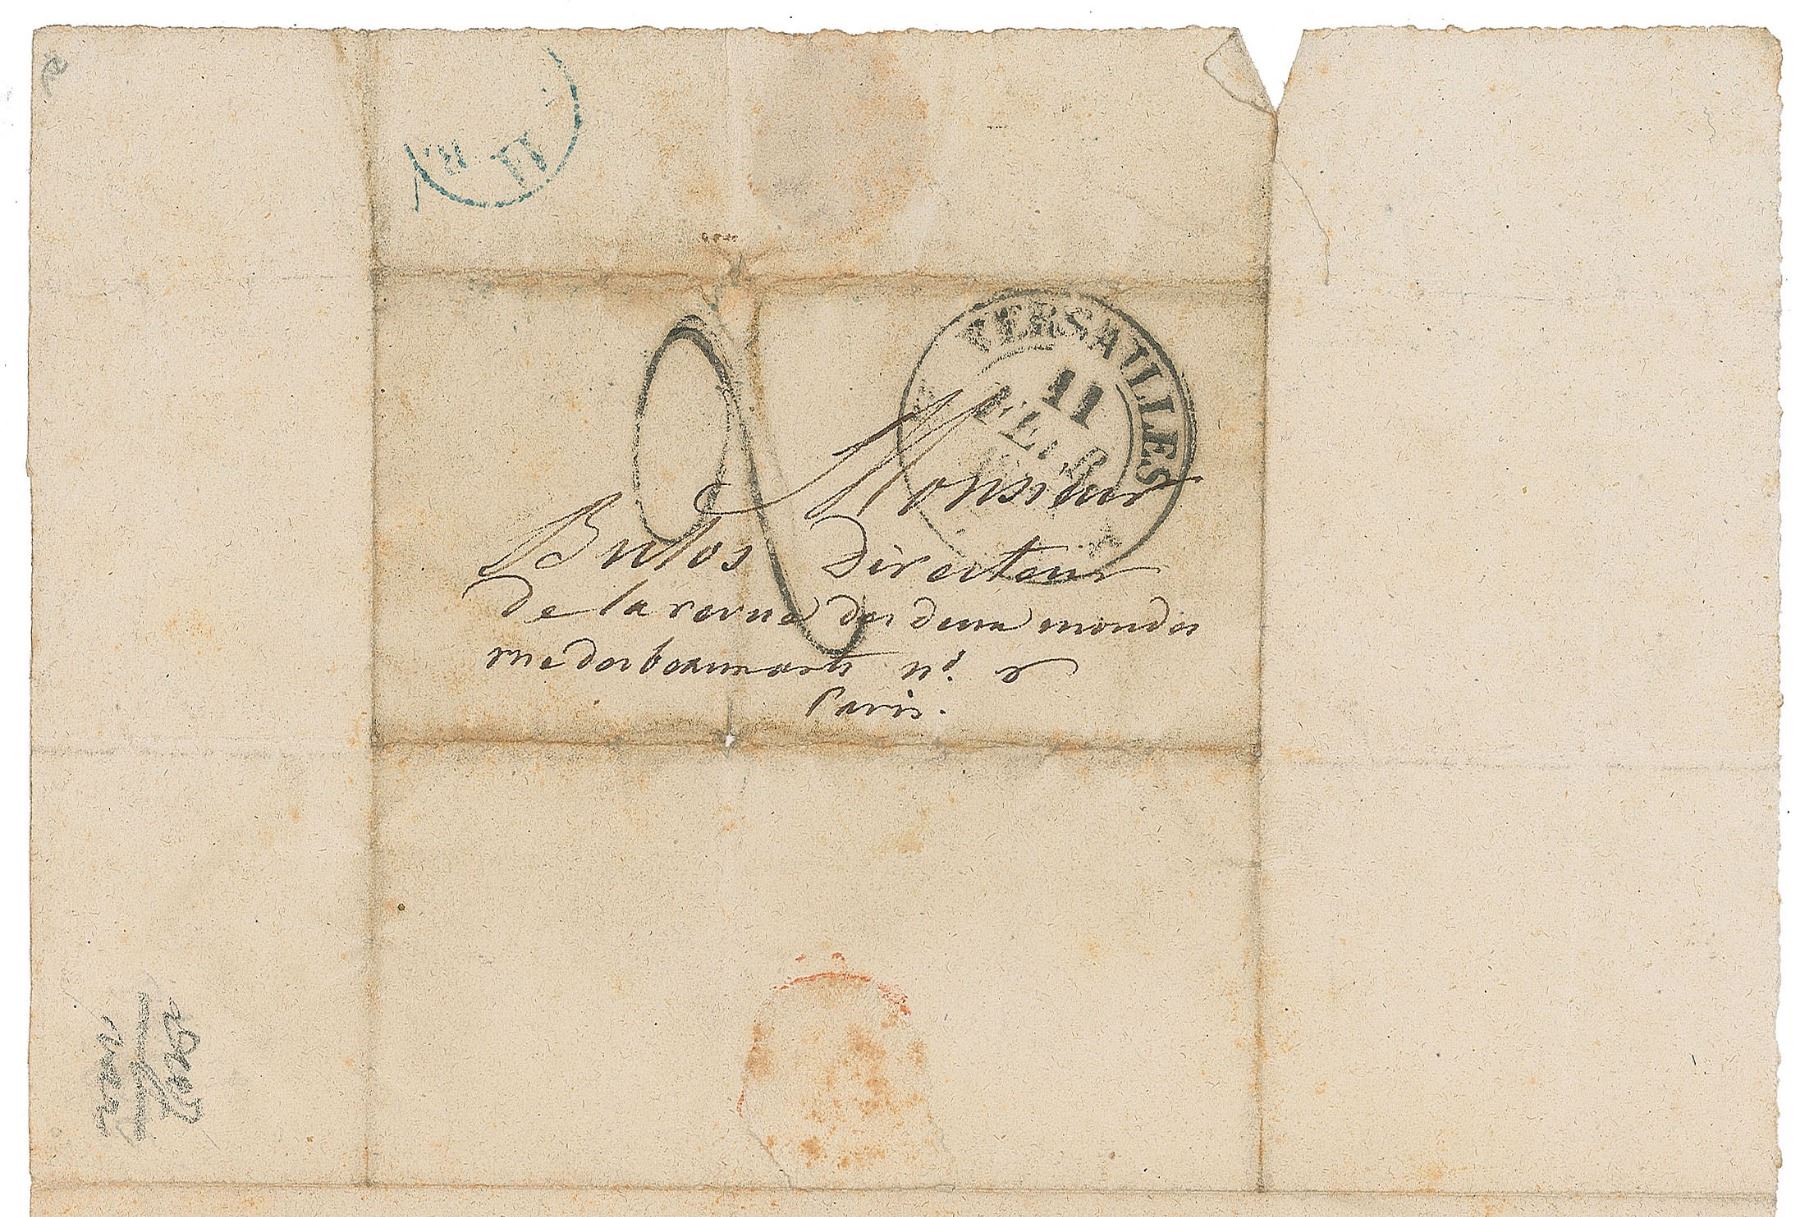 11
VERSAILLES
11
FEVR
Monsieur
Bulos Directeur
de la revue des deux mondes
rue des beaux arts n°.
Paris.